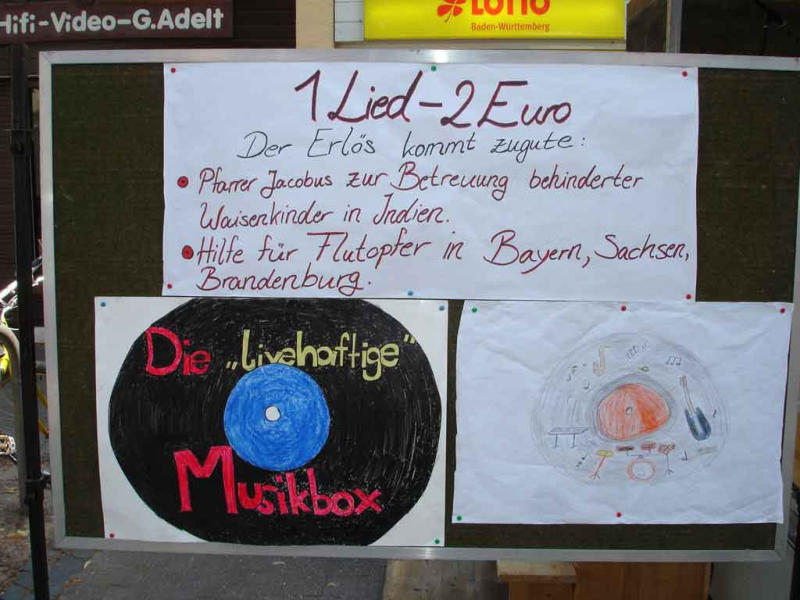 Hifi-Video-G.Adelt
LOTTO
Baden-Württemberg
1 Lied - 2 Euro
Der Erlös kommt zugute:
• Pfarrer Jacobus zur Betreuung behinderter
Waisenkinder in Indien.
• Hilfe für Flutopfer in Bayern, Sachsen,
Brandenburg.
Die „livehaftige"
Musikbox